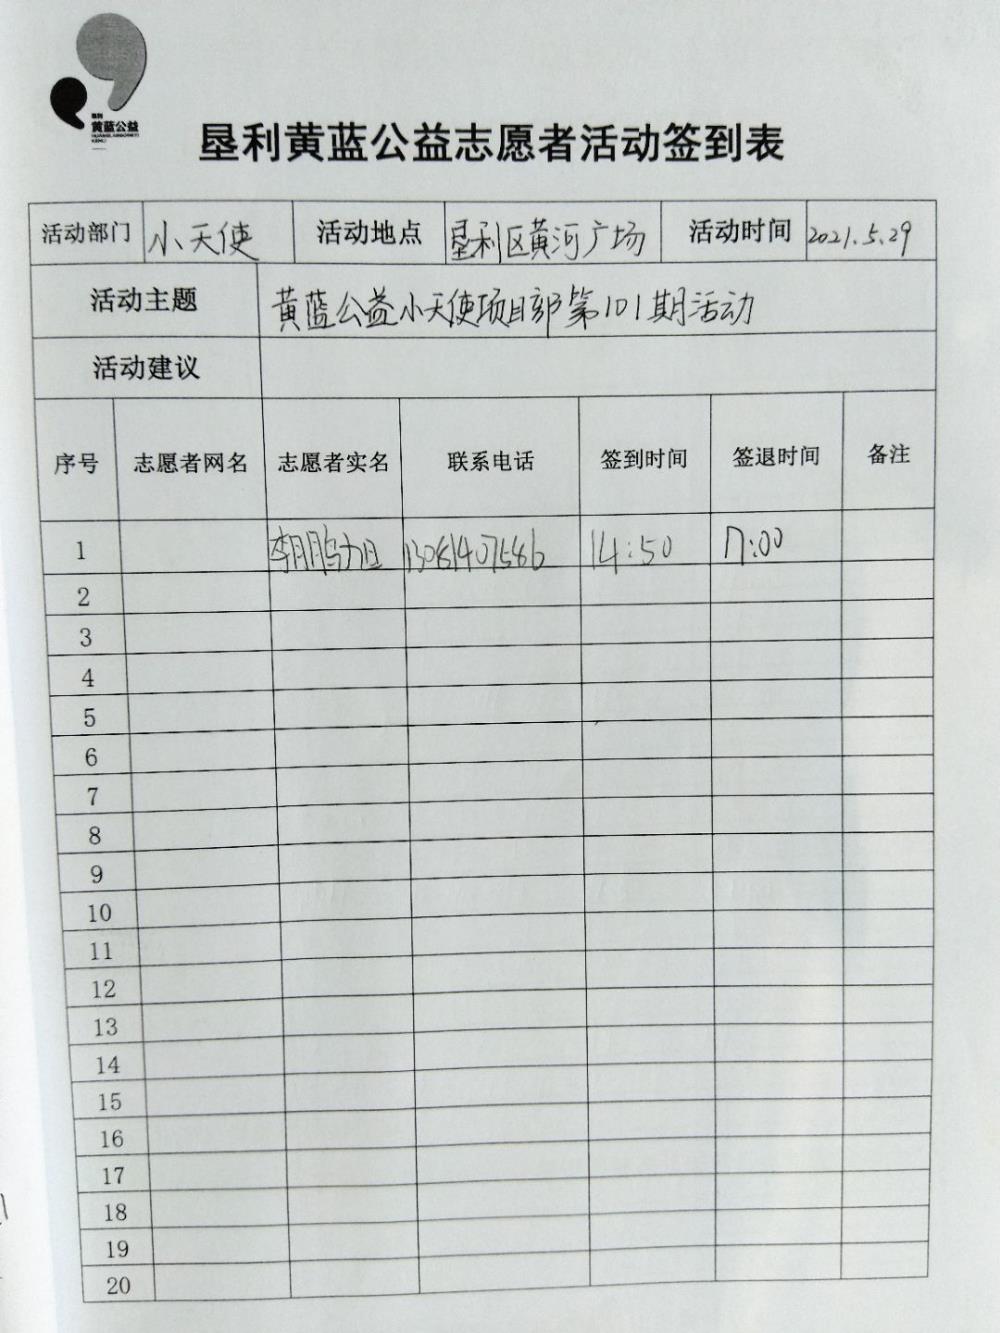 垦利
黄蓝公益
垦利黄蓝公益志愿者活动签到表
活动部门 小天使 活动地点 垦利区黄河广场 活动时间 2021.5.29
活动主题 黄蓝公益小天使项目部第101期活动
活动建议
序号 志愿者网名 志愿者实名 联系电话 签到时间 签退时间 备注
1 李鹏旭 13081407586 14:50 17:00
2
3
4
5
6
7
8
9
10
11
12
13
14
15
16
17
18
19
20